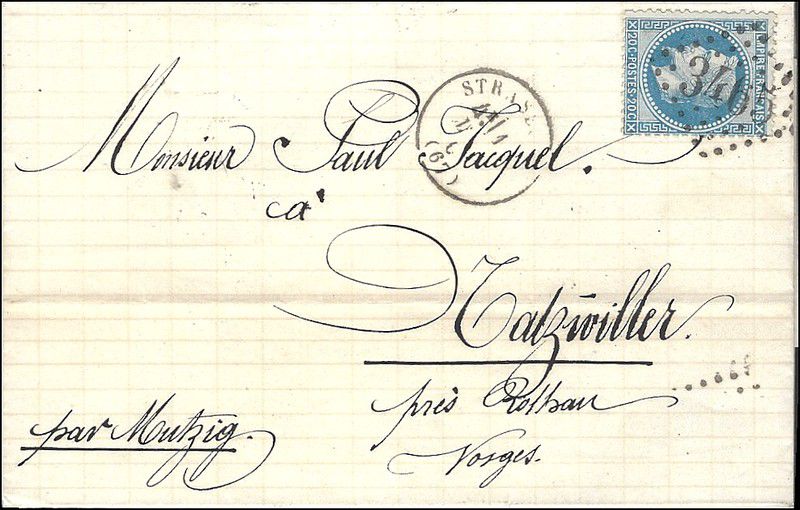 EMPIRE FRANÇAIS
20C·POSTES·20C
346
STRASB
(67)
Monsieur Paul Jacquel.
à
Natzwiller.
près Rothau
Vosges.
par Mutzig.